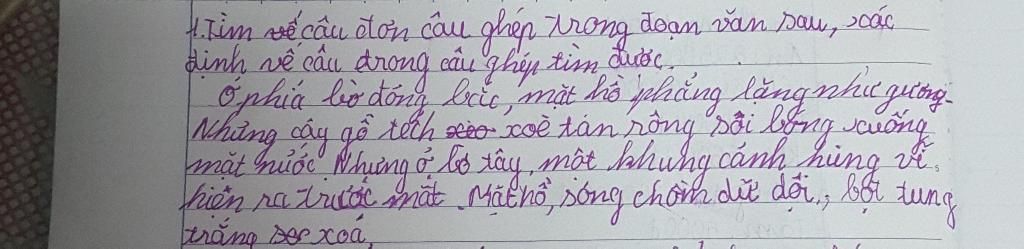 1. Tìm câu đơn câu ghép trong đoạn văn sau, xác
định vế câu trong câu ghép tìm được.
Ở phía bờ đông bắc, mặt hồ phẳng lặng như gương.
Những cây gỗ tếch xoè tán rộng soi bóng xuống
mặt nước. Nhưng ở bờ tây, một khung cảnh hùng vĩ
hiện ra trước mắt. Mặt hồ, sóng chồm dữ dội, bọt tung
trắng xoá,